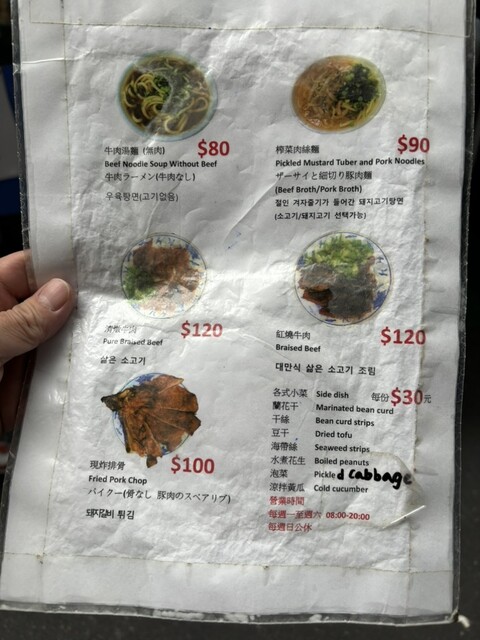 牛肉湯麵 (無肉) $80
Beef Noodle Soup Without Beef
牛肉ラーメン(牛肉なし)
우육탕면(고기없음)
榨菜肉絲麵 $90
Pickled Mustard Tuber and Pork Noodles
ザーサイと細切り豚肉麵
(Beef Broth/Pork Broth)
절인 겨자줄기가 들어간 돼지고기탕면
(소고기/돼지고기 선택가능)
清燉牛肉 $120
Pure Braised Beef
삶은 소고기
紅燒牛肉 $120
Braised Beef
대만식 삶은 소고기 조림
現炸排骨 $100
Fried Pork Chop
パイクー(骨なし 豚肉のスペアリブ)
돼지갈비 튀김
各式小菜 Side dish 每份$30元
蘭花干 Marinated bean curd
干絲 Bean curd strips
豆干 Dried tofu
海帶絲 Seaweed strips
水煮花生 Boiled peanuts
泡菜 Pickled cabbage
涼拌黃瓜 Cold cucumber
營業時間
每週一至週六 08:00-20:00
每週日公休